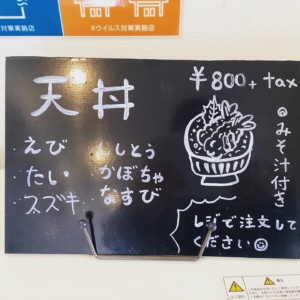 対策実施店
#ウイルス対策実施店
天丼
¥800+tax
えび
ししとう
たい
かぼちゃ
スズキ
なすび
@みそ汁付き
レジで注文して
ください